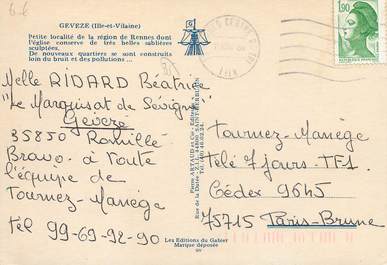 GEVEZE (Ille-et-Vilaine)
Petite localité de la région de Rennes dont
l'église conserve de très belles sablières
sculptées.
De nouveaux quartiers se sont construits
loin du bruit et des pollutions ...
Melle RIDARD Béatrice
"Le Marquisat de Sévigné"
Gévezé
35850 Romillé
Bravo à toute
l'équipe de
Tournez-Manège
tel 99-69-92-90
Pierre ARTAUD et Cie - Editeurs
Rue de la Dutée - Z.I.L. 44800 SAINT-HERBLAIN
1,90
Tournez-Manège
Télé 7 jours-TF1
Cédex 9645
75715 Paris-Brune
Les Editions du Gabier
Marque déposée